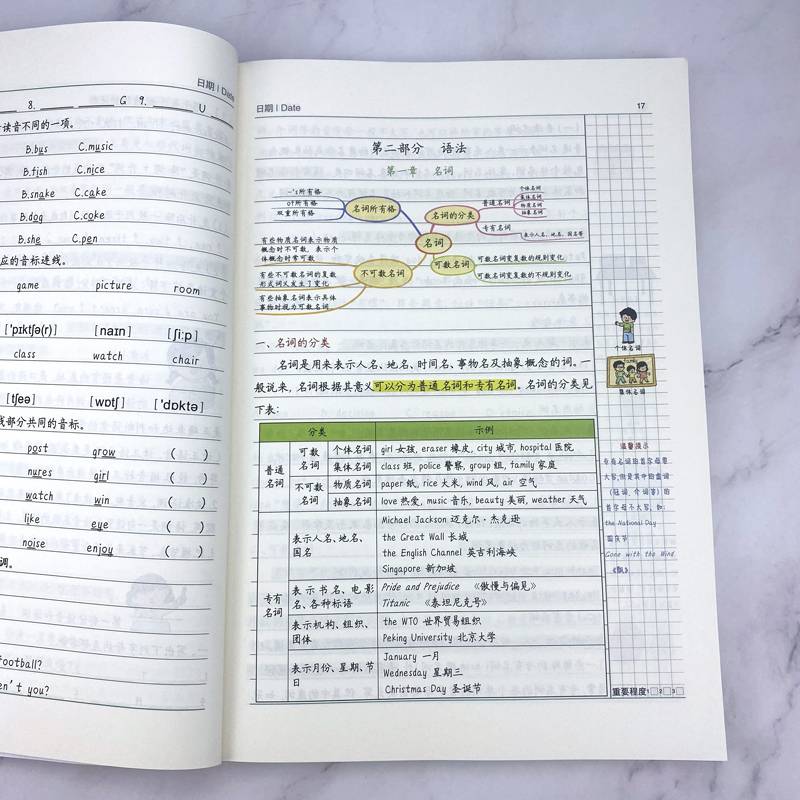 日期 | Date
8. G 9. U
读音不同的一项。
B.bus C.music
B.fish C.nice
B.snake C.cake
B.dog C.coke
B.she C.pen
应的音标连线。
game picture room
['pɪktʃə(r)] [naɪn] [ʃiːp]
class watch chair
[tʃeə] [wɒtʃ] ['dɒktə]
线部分共同的音标。
post grow ( )
nures girl ( )
watch win ( )
like eye ( )
noise enjoy ( )
调。
football?
en't you?
日期 | Date
17
第二部分 语法
第一章 名词
-'s所有格
of所有格
双重所有格
名词所有格
名词的分类
普通名词
个体名词
集体名词
物质名词
抽象名词
专有名词
表示人名、地名、国名等
名词
可数名词
可数名词变复数的规则变化
可数名词变复数的不规则变化
不可数名词
有些物质名词表示物质
概念时不可数,表示个
体概念时常可数
有些不可数名词的复数
形式词义发生了变化
有些抽象名词表示具体
事物时视为可数名词
一、名词的分类
名词是用来表示人名、地名、时间名、事物名及抽象概念的词。一
般说来,名词根据其意义可以分为普通名词和专有名词。名词的分类见
下表:
分类 示例
普通名词 可数名词 个体名词 girl 女孩, eraser 橡皮, city 城市, hospital 医院
集体名词 class 班, police 警察, group 组, family 家庭
不可数名词 物质名词 paper 纸, rice 大米, wind 风, air 空气
抽象名词 love 热爱, music 音乐, beauty 美丽, weather 天气
专有名词
表示人名、地名、
国名
Michael Jackson 迈克尔·杰克逊
the Great Wall 长城
the English Channel 英吉利海峡
Singapore 新加坡
表示书名、电影
名、各种标语
Pride and Prejudice 《傲慢与偏见》
Titanic 《泰坦尼克号》
表示机构、组织、
团体
the WTO 世界贸易组织
Peking University 北京大学
表示月份、星期、节
日
January 一月
Wednesday 星期三
Christmas Day 圣诞节
个体名词
集体名词
温馨提示
专有名词的首字母要
大写,但是其中的虚词
(冠词、介词等)的
首字母不大写,如:
the National Day
国庆节
Gone with the Wind
《飘》
重要程度 1 2 3